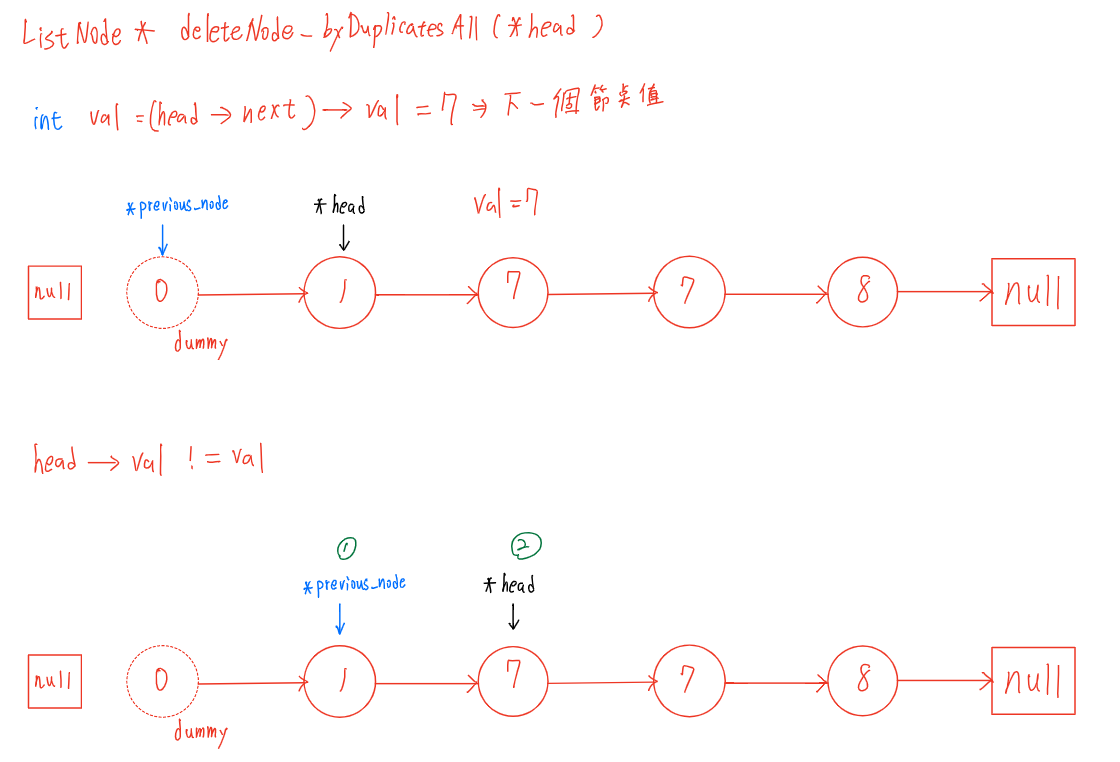 ListNode * deleteNode_byDuplicatesAll ( *head )
int val = (head → next) → val = 7 ⇒ 下一個節點值
*previous_node *head val = 7
null 0 1 7 7 8 null
dummy
head → val != val
① ②
*previous_node *head
null 0 1 7 7 8 null
dummy